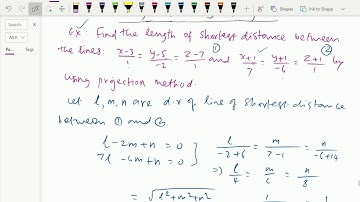 Ink to Shape
Ink to
Ex: Find the length of shortest distance between
the lines: x-3/1 = y-5/-2 = z-7/1 ① and x+1/7 = y+1/-6 = z+1/1 ② by
using projection method.
Let l, m, n are d.r of line of shortest distance
between ① and ②
l-2m+n = 0
7l-6m+n = 0
l/-2+6 = m/7-1 = n/-6+14
⇒ l/4 = m/6 = n/8
= √l²+m²+n²